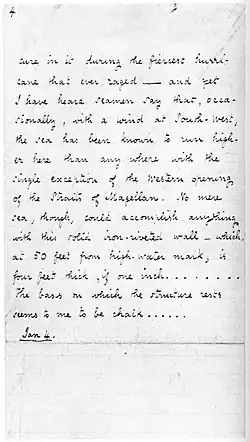 4
cure in it during the fiercest hurri-
cane that ever raged — and yet
I have heard seamen say that, occa-
sionally, with a wind at South-West,
the sea has been known to run high-
er here than any where with the
single exception of the Western opening
of the Straits of Magellan. No mere
sea, though, could accomplish anything
with this solid iron-riveted wall — which,
at 50 feet from high-water mark, is
four feet thick, if one inch........
The basis on which the structure rests
seems to me to be chalk......
Jan 4.